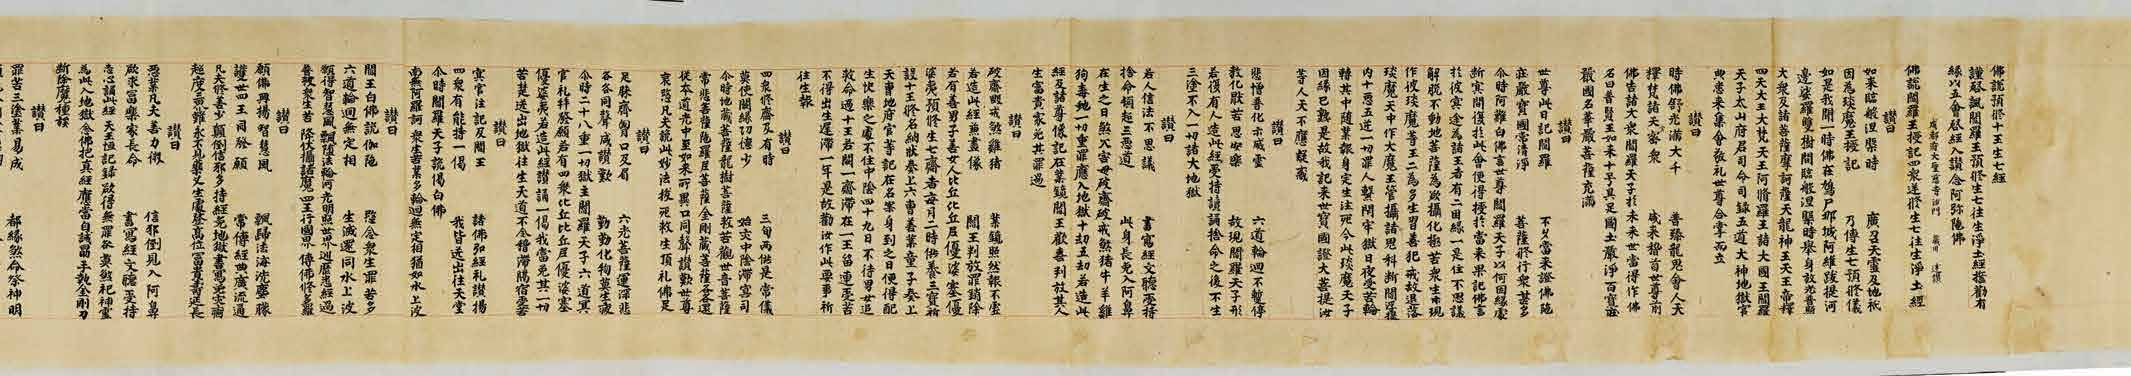 佛說預修十王生七經
謹啓諷閻羅王預修生七往生淨土經誓勸有
緣以五會啓經入讚念阿弥陁佛
成都府大聖慈寺沙門 藏川 述讚
佛說閻羅王授記四衆逆修生七往生淨土經
讚曰
如來臨般涅槃時 廣召天靈及地祇
因為琰魔王授記 乃傳生七預修儀
如是我聞一時佛在鳩尸那城阿維跋提河
邊娑羅雙樹間臨般涅槃時舉身放光普照
大衆及諸菩薩摩訶薩天龍神王天王帝釋
四天大王大梵天王阿脩羅王諸大國王閻羅
天子太山府君司命司錄五道大神地獄官
典悉來集會敬礼世尊合掌而立
讚曰
時佛舒光滿大千 普臻龍鬼會人天
釋梵諸天冥密衆 咸來稽首世尊前
佛告諸大衆閻羅天子於未來世當得作佛
名曰普賢王如來十号具足國土嚴淨百寶莊
嚴國名華嚴菩薩充滿
讚曰
世尊此日記閻羅 不久當來證佛陁
莊嚴寶國常清淨 菩薩修行衆甚多
尒時阿羅白佛言世尊閻羅天子以何因緣處
斷冥間復於此會便得授於當來果記佛言
於彼冥途為諸王者有二因緣一是住不思議
解脫不動地菩薩為欲攝化極苦衆生示現
作彼琰魔等王二為多生習善犯戒故退落
琰魔天中作大魔王管攝諸鬼科斷閻浮提
內十惡五逆一切罪人繫閉牢獄日夜受苦輪
轉其中隨業報身定生注死今此琰魔天子
因緣已熟是故我記來世寶國證大菩提汝
等人天不應疑惑
讚曰
悲憎普化示威靈 六道輪迴不暫停
教化猒苦思安樂 故現閻羅天子形
若復有人造此經受持讀誦捨命之後不生
三塗不入一切諸大地獄
讚曰
若人信法不思議 書寫經文聽受持
捨命頓超三惡道 此身長免入阿鼻
在生之日煞父害母破齋破戒煞猪牛羊雞
狗毒虵一切重罪應入地獄十劫五劫若造此
經及諸尊像記在業鏡閻王歡喜判放其人
生富貴家免其罪過
讚曰
破齋毀戒煞雞猪 業鏡照然報不虛
若造此經兼畫像 閻王判放罪銷除
若有善男子善女人比丘比丘尼優婆塞優
婆夷預修生七齋者每月二時供養三寶祈
設十王修名納狀奏上六曹善業童子奏上
天曹地府官等記在名案身到之日便得配
生快樂之處不住中陰四十九日不待男女追
救命過十王若闕一齋滯在一王留連受苦
不得出生遲滯一年是故勸汝作此要事祈
往生報
讚曰
四衆修齋及有時 三旬兩供是常儀
莫使闕緣功德少 始交中陰滯冥司
尒時地藏菩薩龍樹菩薩救苦觀世音菩薩
常悲菩薩陁羅尼菩薩金剛藏菩薩各各還
從本道光中至如來所異口同聲讚歎世尊
哀愍凡夫說此妙法拔死救生頂礼佛足
讚曰
足膝齋胸口及眉 六光菩薩運深悲
各各同聲咸讚歎 勤勤化物莫生疲
尒時二十八重一切獄主閻羅天子六道冥
官礼拜發願若有四衆比丘比丘尼優婆塞
優婆夷若造此經讚誦一偈我當免其一切
苦楚送出地獄往生天道不令稽滯隔宿受苦
讚曰
冥官注記及閻王 諸佛知經礼讚揚
四衆有能持一偈 我皆送出往天堂
尒時閻羅天子說偈白佛
南無阿羅訶 衆生苦業多 輪迴無定相 猶如水上波
讚曰
閻王白佛說伽陁 愍念衆生罪苦多
六道輪迴無定相 生滅還同水上波
願得智慧風 飄墮法輪河 光明照世界 巡歷悉經過
普救衆生苦 降伏攝諸魔 四王行國界 傳佛修多羅
讚曰
願佛興揚智慧風 飄歸法海洗塵朦
護世四王同發願 常傳經典廣流通
凡夫修善少 顛倒信邪多 持經免地獄 書寫免灾痾
超度三界難 永不見藥叉 生處登高位 富貴壽延長
讚曰
惡業凡夫善力微 信邪倒見入阿鼻
欲求富樂家長命 書寫經文聽受持
志心誦此經 天王恒記錄 欲得無罪咎 莫煞祀神靈
為此入地獄 念佛把真經 應當自誡勗 手執金剛刀
斷除魔種族
讚曰
罪苦三塗業易成 都緣煞命祭神明